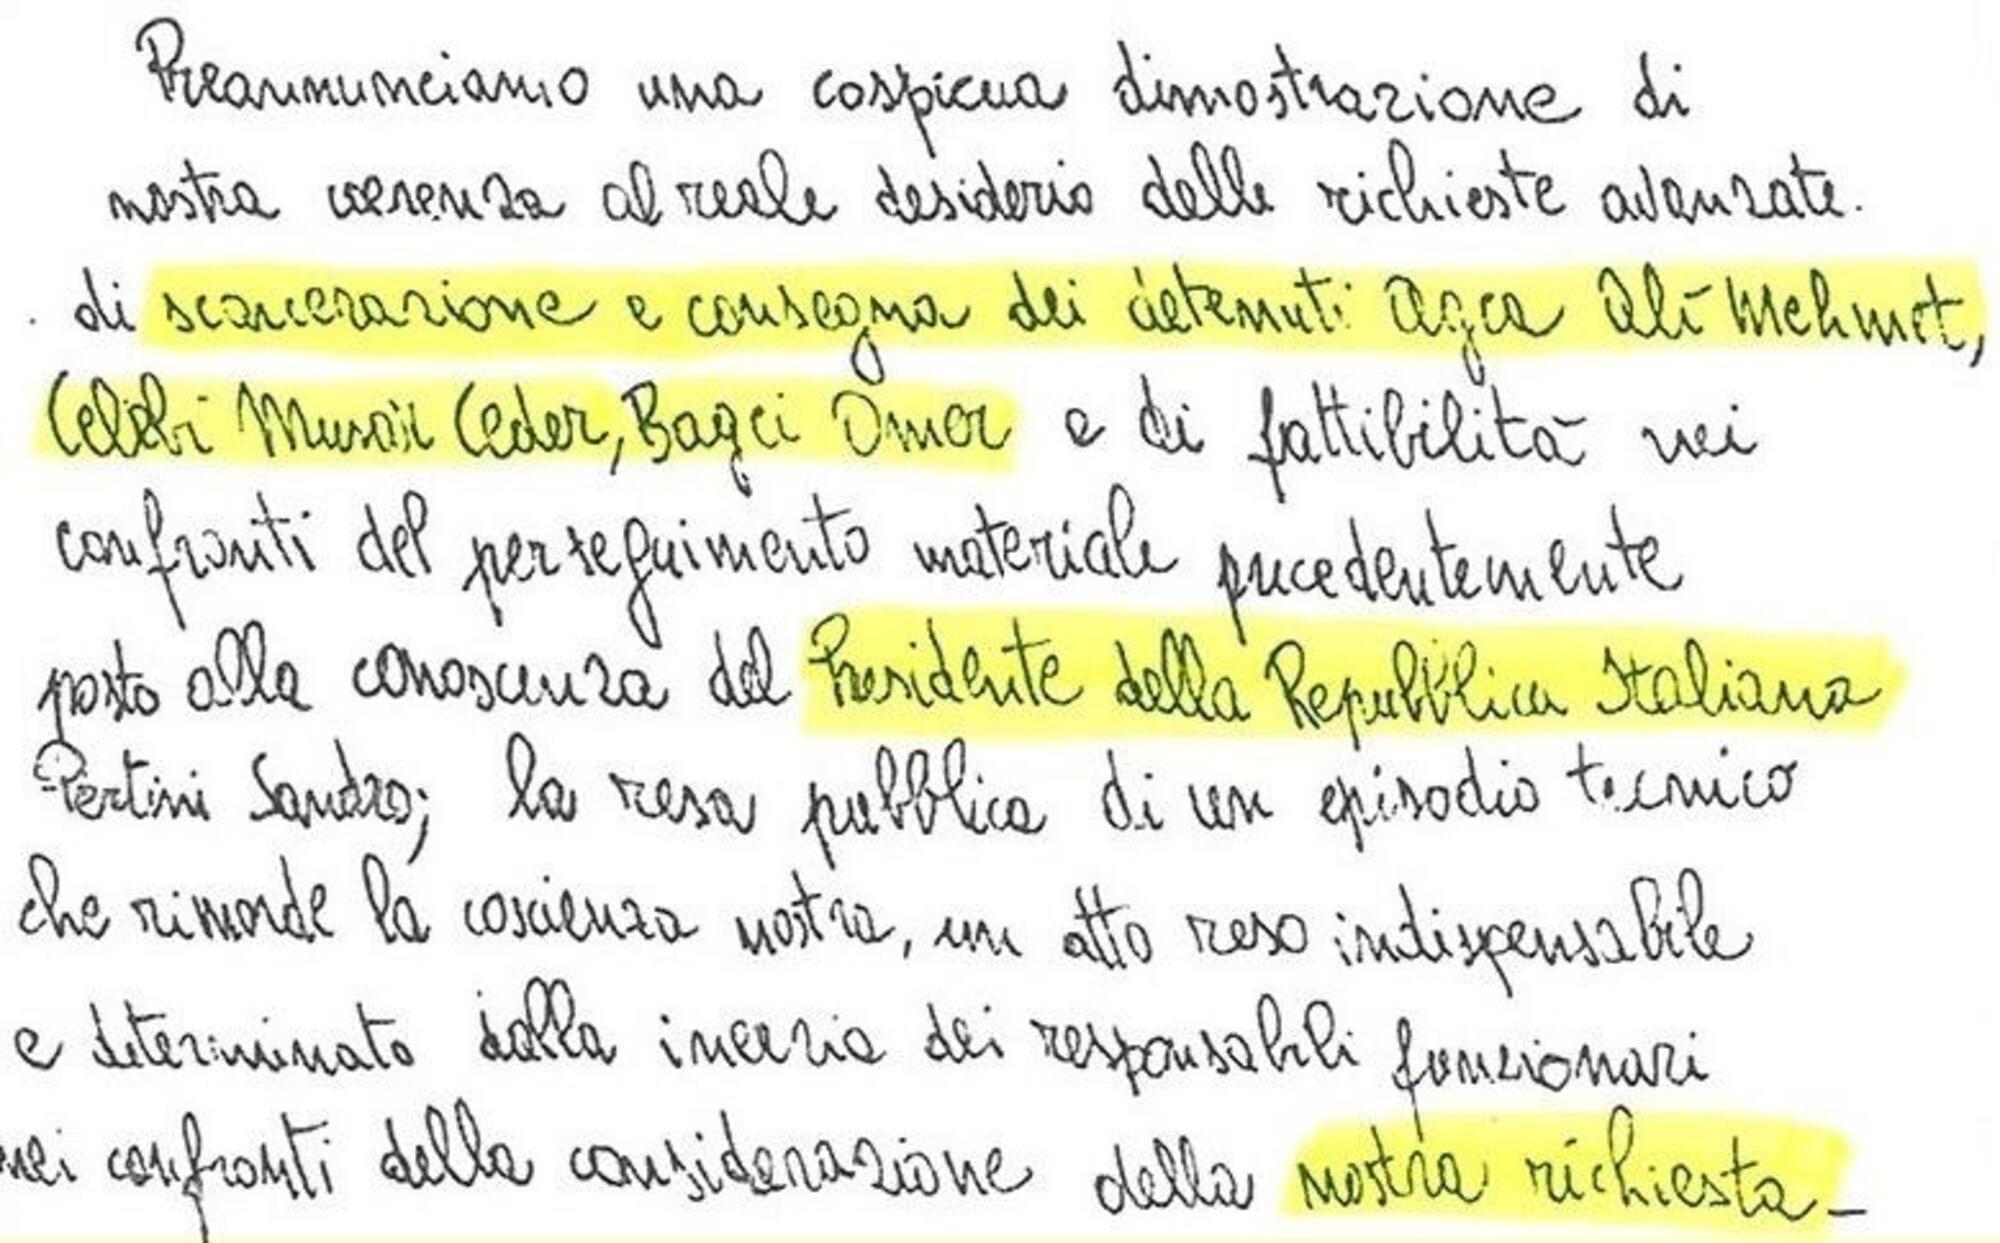 Preannunciamo una cospicua dimostrazione di
nostra coerenza al reale desiderio delle richieste avanzate.
di scarcerazione e consegna dei detenuti Agca Alì Mehmet,
Celebi Musar Ceder, Bagci Omer e di fattibilità nei
confronti del perseguimento materiale precedentemente
posto alla conoscenza del Presidente della Repubblica Italiana
Pertini Sandro; la resa pubblica di un episodio tecnico
che rimorde la coscienza nostra, un atto reso indispensabile
e determinato dalla inerzia dei responsabili funzionari
nei confronti della considerazione della nostra richiesta -